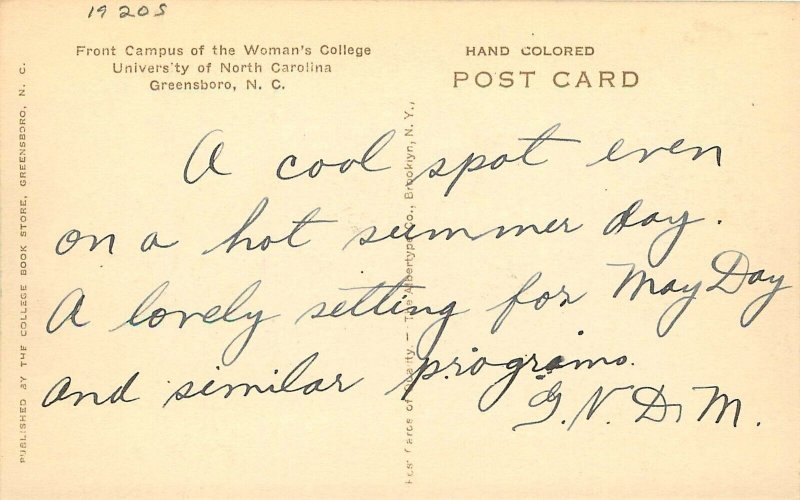 1920s
Front Campus of the Woman's College
University of North Carolina
Greensboro, N. C.
HAND COLORED
POST CARD
PUBLISHED BY THE COLLEGE BOOK STORE, GREENSBORO, N. C.
Post Cards of Quality. — The Albertype Co., Brooklyn, N. Y.,
A cool spot even
on a hot summer day.
A lovely setting for May Day
and similar programs.
G. N. D. M.